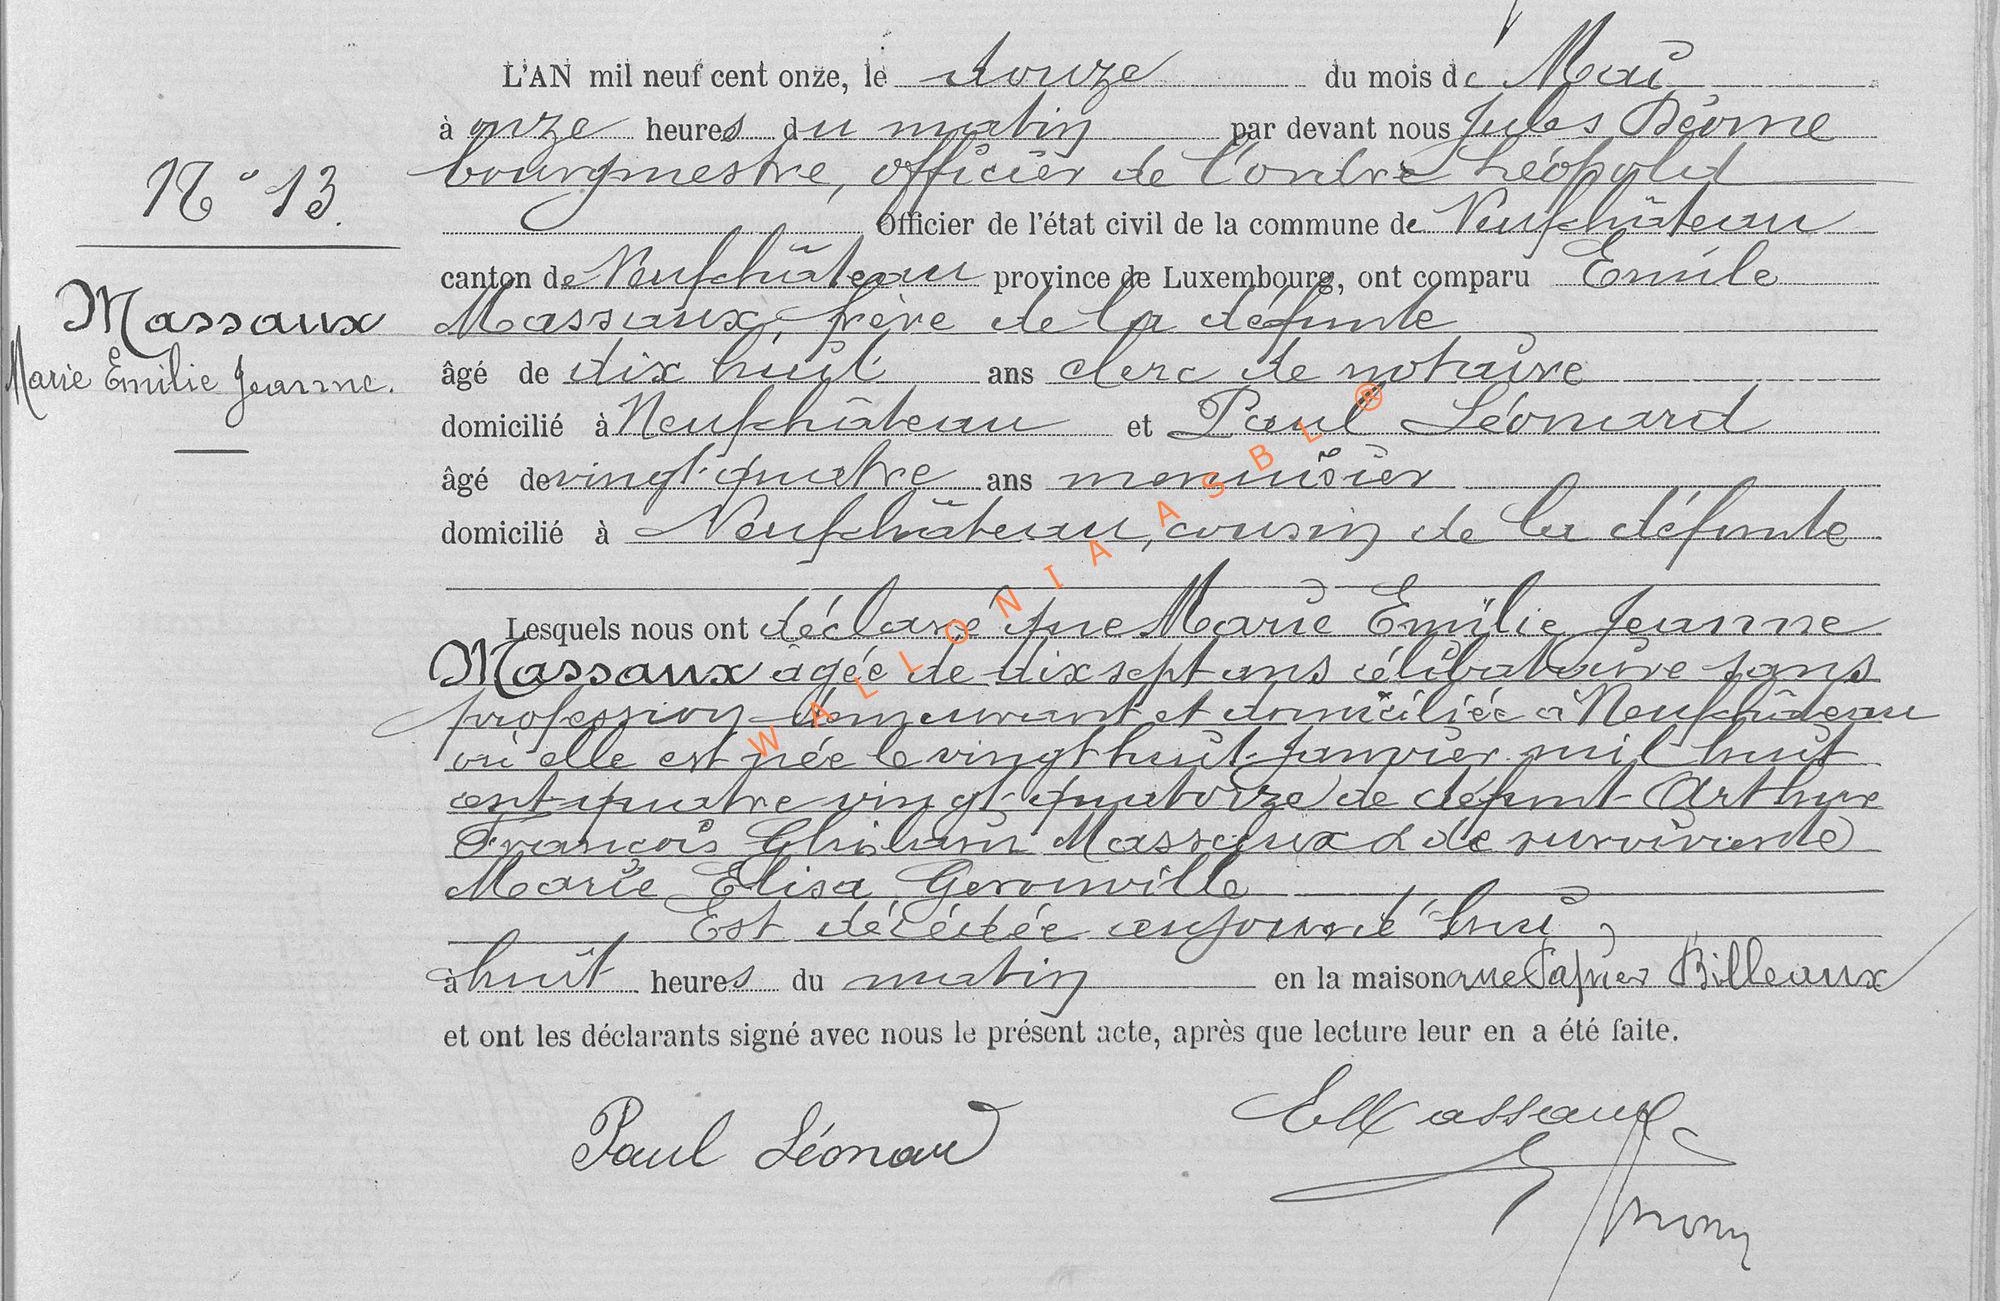 L'AN mil neuf cent onze, le douze du mois de Mai
à onze heures du matin par devant nous Jules
bourgmestre, officier de l'ordre Léopold
N° 13.
Officier de l'état civil de la commune de Neufchâteau
canton de Neufchâteau province de Luxembourg, ont comparu Emile
Massaux
Massaux, frère de la défunte
Marie Emilie Jeanne.
âgé de dix huit ans clerc de notaire
domicilié à Neufchâteau et Paul Léonard
âgé de vingt-quatre ans menuisier
domicilié à Neufchâteau, cousin de la défunte
Lesquels nous ont déclaré que Marie Emilie Jeanne
Massaux âgée de dix sept ans célibataire sans
profession demeurant et domiciliée à Neufchâteau
où elle est née le vingt huit Janvier mil huit
cent quatre vingt quatorze de défunt Arthur
François Ghislain Massaux & de survivante
Marie Elisa Gerouville
Est décédée aujourd'hui,
à huit heures du matin en la maison rue Papier Billeaux
et ont les déclarants signé avec nous le présent acte, après que lecture leur en a été faite.
Paul Léonard
EMassaux
WALLONIA ASBL ®